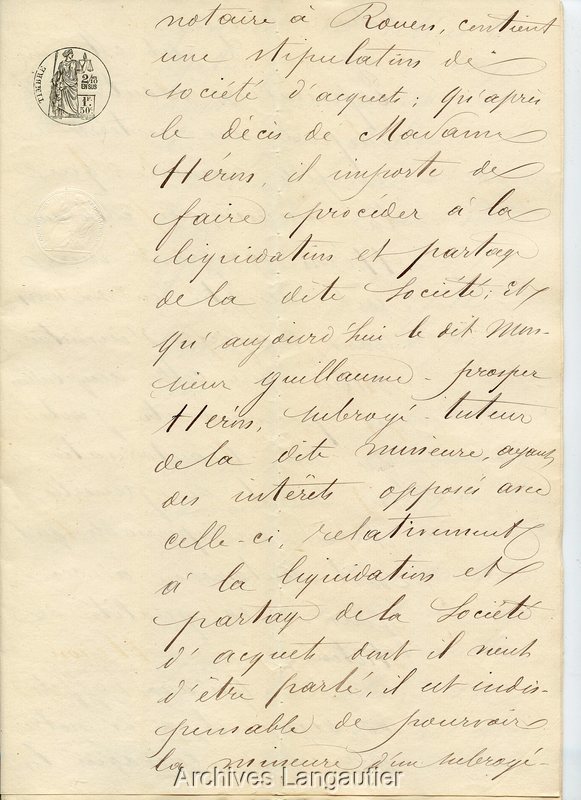 notaire à Rouen, contient
une stipulation de
société d'acquets; qu'après
le décès de Madame
Héron, il importe de
faire procéder à la
liquidation et partage
de la dite Société; et
qu'aujourd'hui le dit Mon-
sieur Guillaume-Prosper
Héron, subrogé-tuteur
de la dite mineure, ayant
des intérêts opposés avec
celle-ci, relativement
à la liquidation et
partage de la Société
d'acquets dont il vient
d'être parlé, il est indis-
pensable de pourvoir
la mineure d'un subrogé-
TIMBRE
2/10
EN SUS
1F
50C
Archives Langautier